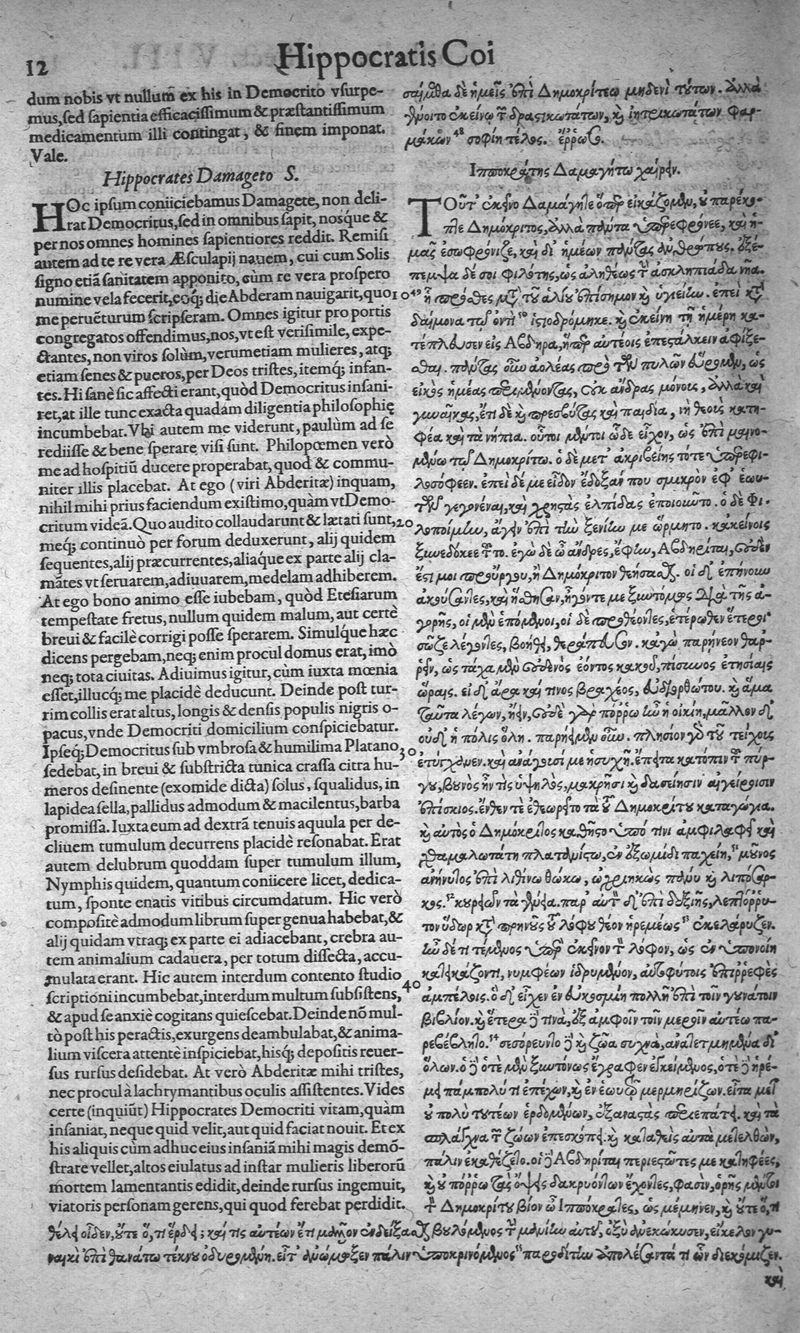 12
Hippocratis Coi
dum nobis vt nullum ex his in Democrito vsurpe-
mus, sed sapientia efficacissimum & præstantissimum
medicamentum illi contingat, & finem imponat.
Vale.
Hippocrates Damageto S.
HOc ipsum coniiciebamus Damagete, non deli-
rat Democritus, sed in omnibus sapit, nosque &
per nos omnes homines sapientiores reddit. Remisi
autem ad te re vera Æsculapij nauem, cui cum Solis
signo etiā sanitatem apponito, cùm re vera prospero
numine vela fecerit, eoq; die Abderam nauigarit, quo
me peruēturum scripseram. Omnes igitur pro portis
congregatos offendimus, nos, vt est verisimile, expe-
ctantes, non viros solùm, verumetiam mulieres, atq;
etiam senes & pueros, per Deos tristes, itemq; infan-
tes. Hi sanè sic affecti erant, quòd Democritus insani-
ret, at ille tunc exacta quadam diligentia philosophię
incumbebat. Vbi autem me viderunt, paulùm ad se
rediisse & bene sperare visi sunt. Philopœmen verò
me ad hospitiū ducere properabat, quod & commu-
niter illis placebat. At ego (viri Abderitæ) inquam,
nihil mihi prius faciendum existimo, quàm vt Demo-
critum videā. Quo audito collaudarunt & lætati sunt,
meq; continuò per forum deduxerunt, alij quidem
sequentes, alij præcurrentes, aliaque ex parte alij cla-
mātes vt seruarem, adiuuarem, medelam adhiberem.
At ego bono animo esse iubebam, quòd Etesiarum
tempestate fretus, nullum quidem malum, aut certè
breui & facilè corrigi posse sperarem. Simulque hæc
dicens pergebam, neq; enim procul domus erat, imò
neq; tota ciuitas. Adiuimus igitur, cùm iuxta mœnia
esset, illucq; me placidè deducunt. Deinde post tur-
rim collis erat altus, longis & densis populis nigris o-
pacus, vnde Democriti domicilium conspiciebatur.
Ipseq; Democritus sub vmbrosa & humilima Platano
sedebat, in breui & substricta tunica crassa citra hu-
meros desinente (exomide dicta) solus, squalidus, in
lapidea sella, pallidus admodum & macilentus, barba
promissa. Iuxta eum ad dextrā tenuis aquula per de-
cliuem tumulum decurrens placidè resonabat. Erat
autem delubrum quoddam super tumulum illum,
Nymphis quidem, quantum coniicere licet, dedica-
tum, sponte enatis vitibus circumdatum. Hic verò
compositè admodum librum super genua habebat, &
alij quidam vtraq; ex parte ei adiacebant, crebra au-
tem animalium cadauera, per totum dissecta, accu-
mulata erant. Hic autem interdum contento studio
scriptioni incumbebat, interdum multum subsistens,
& apud se anxiè cogitans quiescebat. Deinde nō mul-
tò post his peractis, exurgens deambulabat, & anima-
lium viscera attentè inspiciebat, hisq; depositis reuer-
sus rursus desidebat. At verò Abderitæ mihi tristes,
nec procul à lachrymantibus oculis assistentes. Vides
certe (inquiūt) Hippocrates Democriti vitam, quàm
insaniat, neque quid velit, aut quid faciat nouit. Et ex
his aliquis cùm adhuc eius insaniā mihi magis demō-
strare vellet, altos eiulatus ad instar mulieris liberorū
mortem lamentantis edidit, deinde rursus ingemuit,
viatoris personam gerens, qui quod ferebat perdidit.
δὲ ἡμεῖς ἐπὶ Δημοκρίτεω μηδενὶ τύτων. ἀλλὰ
σοφίη τέλος. ἔρρωσο.
Ιπποκράτης Δαμαγήτω χαίρειν.
ΤΟῦτ' ἐκεῖνο Δαμάγητε ὅπερ εἰκάζομεν, οὐ παρέκο-
πτε Δημόκριτος, ἀλλὰ πάντα ὑπερεφρόνεε, καὶ ἡ-
μᾶς ἐσωφρόνιζε, καὶ δι' ἡμέων πάντας ἀνθρώπους, ἐξέ-
πεμψα δέ σοι φιλότης, ὡς ἀληθέως τὴν ἀσκληπιάδα νῆα.
10
δαίμονα τῷ ὄντι ἱστιοδρόμηκε. καὶ ἐκείνη τῇ ἡμέρῃ κα-
τέπλευσεν εἰς Ἄβδηρα,
πάντας οὖν ἀολέας πρὸ τῶν πυλῶν εὕρομεν, ὡς
εἰκὸς ἡμέας περιμένοντας, οὐκ ἄνδρας μόνους, ἀλλὰ καὶ
γυναῖκας, ἔτι δὲ καὶ πρεσβύτας καὶ παιδία, νὴ θεοὺς κατη-
φέα καὶ τὰ νήπια. οὗτοι μέντοι ὧδε εἶχον, ὡς ἐπὶ μαινο-
μένῳ τῷ Δημοκρίτῳ. ὁ δὲ μετ' ἀκριβείης τότε ὑπερεφι-
λοσόφεεν. ἐπεὶ δέ με εἶδον ἔδοξάν που σμικρὸν ἐφ' ἑωυ-
τῶν γεγονέναι, καὶ χρηστὰς ἐλπίδας ἐποιοῦντο. ὁ δὲ Φι-
20
λοποίμην, ἄγειν ἐπὶ τὴν ξενίην με ὥρμητο. κἀκείνοις
ξυνεδόκεε τοῦτο. ἐγὼ δὲ ὦ ἄνδρες, ἔφην, Ἀβδηρῖται, οὐδέν
ἐστί μοι προὔργου, ἢ Δημόκριτον θηήσασθαι. οἱ δ' ἐπῄνουν
ἀκούσαντες, καὶ ἥσθησαν, ἦγόν τέ με ξυντόμως διὰ τῆς ἀ-
γορῆς, οἱ μὲν ἑπόμενοι, οἱ δὲ προθέοντες, ἑτέρωθεν ἕτεροι
σῶζε λέγοντες, βοήθει, θεράπευσον. κἀγὼ παρῄνεον θαρ-
ρεῖν, ὡς τάχα μὲν οὐδενὸς ἐόντος κακοῦ, πίσυνος ἐτησίαις
ὥραις. εἰ δ' ἄρα καί τινος βραχέος, εὐδιορθώτου. καὶ ἅμα
ταῦτα λέγων, ᾔειν, οὐδὲ γὰρ πόρρω ἦν ἡ οἰκίη, μᾶλλον δ'
οὐδ' ἡ πόλις ὅλη. παρῆμεν οὖν. πλησίον γὰρ τοῦ τείχους
30
ἐτύγχανεν. καὶ ἀνάγουσί με ἡσυχῆ. ἔπειτα κατόπιν τοῦ πύρ-
γου, βουνὸς ἦν τις ὑψηλός, μακρῇσι καὶ δασείῃσιν αἰγείροισιν
ἐπίσκιος. ἔνθεν τε ἐθεωρεῖτο τὰ τοῦ Δημοκρίτου καταγώγια.
καὶ αὐτὸς ὁ Δημόκριτος καθῆστο ὑπό τινι ἀμφιλαφεῖ καὶ
χθαμαλωτάτῃ πλατανίστῳ, ἐν ἐξωμίδι παχείῃ, μοῦνος
ἐπὶ λιθίνῳ θώκῳ, ὠχριηκὼς πάνυ καὶ λιπόσαρ-
κος. κουριῶν τὰ γένεια. παρ' αὐτὸν δ' ἐπὶ δεξιῆς, λεπτόρρυ-
τον ὕδωρ κατὰ πρηνοῦς τοῦ λόφου θέον ἠρεμέως ἐκελάρυζεν.
ἦν δέ τι τέμενος ὑπὲρ ἐκεῖνον τὸν λόφον, ὡς ἐν ὑπονοίῃ
κατεικάζοντι, νυμφέων ἱδρυμένον, αὐτοφύτοις ἐπηρεφὲς
40
ἀμπέλοις. ὁ δ' εἶχεν ἐν εὐκοσμίῃ πολλῇ ἐπὶ τοῖν γουνάτοιν
βιβλίον. καὶ ἕτερα δέ τινα, ἐξ ἀμφοῖν τοῖν μεροῖν αὐτέῳ πα-
ρεβέβλητο. σεσώρευντο δὲ καὶ ζῶα συχνά, ἀνατετμημένα δι'
ὅλων. ὁ δὲ ὁτὲ μὲν ξυντόνως ἔγραφεν ἐγκείμενος, ὁτὲ δὲ ἠρέ-
μει πάμπολύ τι ἐπέχων, καὶ ἐν ἑωυτῷ μερμηρίζων. εἶτα μετ'
οὐ πολὺ τουτέων ἐρδομένων, ἐξαναστὰς περιεπάτει. καὶ τὰ
σπλάγχνα τῶν ζώων ἐπεσκόπει. καὶ καταθεὶς αὐτὰ μετελθών,
πάλιν ἐκαθέζετο. οἱ δὲ Ἀβδηρῖται περιεστῶτές με κατηφέες,
καὶ οὐ πόρρω τὰς ὄψεις δακρυόντων ἔχοντες, φασίν, ὁρῇς μέντοι
τὸν Δημοκρίτου βίον ὦ Ἱππόκρατες, ὡς μέμηνεν, καὶ οὔτε ὅ, τι
θέλει οἶδεν, οὔτε ὅ, τι ἔρδει; καί τις αὐτέων ἔτι μᾶλλον ἐνδείξασθαι βουλόμενος τὴν μανίην αὐτοῦ, ὀξὺ ἀνεκώκυσεν, εἴκελον γυ-
ναικὶ ἐπὶ θανάτῳ τέκνου ὀδυρομένῃ. εἶτ' ἀνῴμωξεν πάλιν ὑποκρινόμενος παροδίτην ἀπολέσαντά τι ὧν διεκόμιζεν.
καὶ